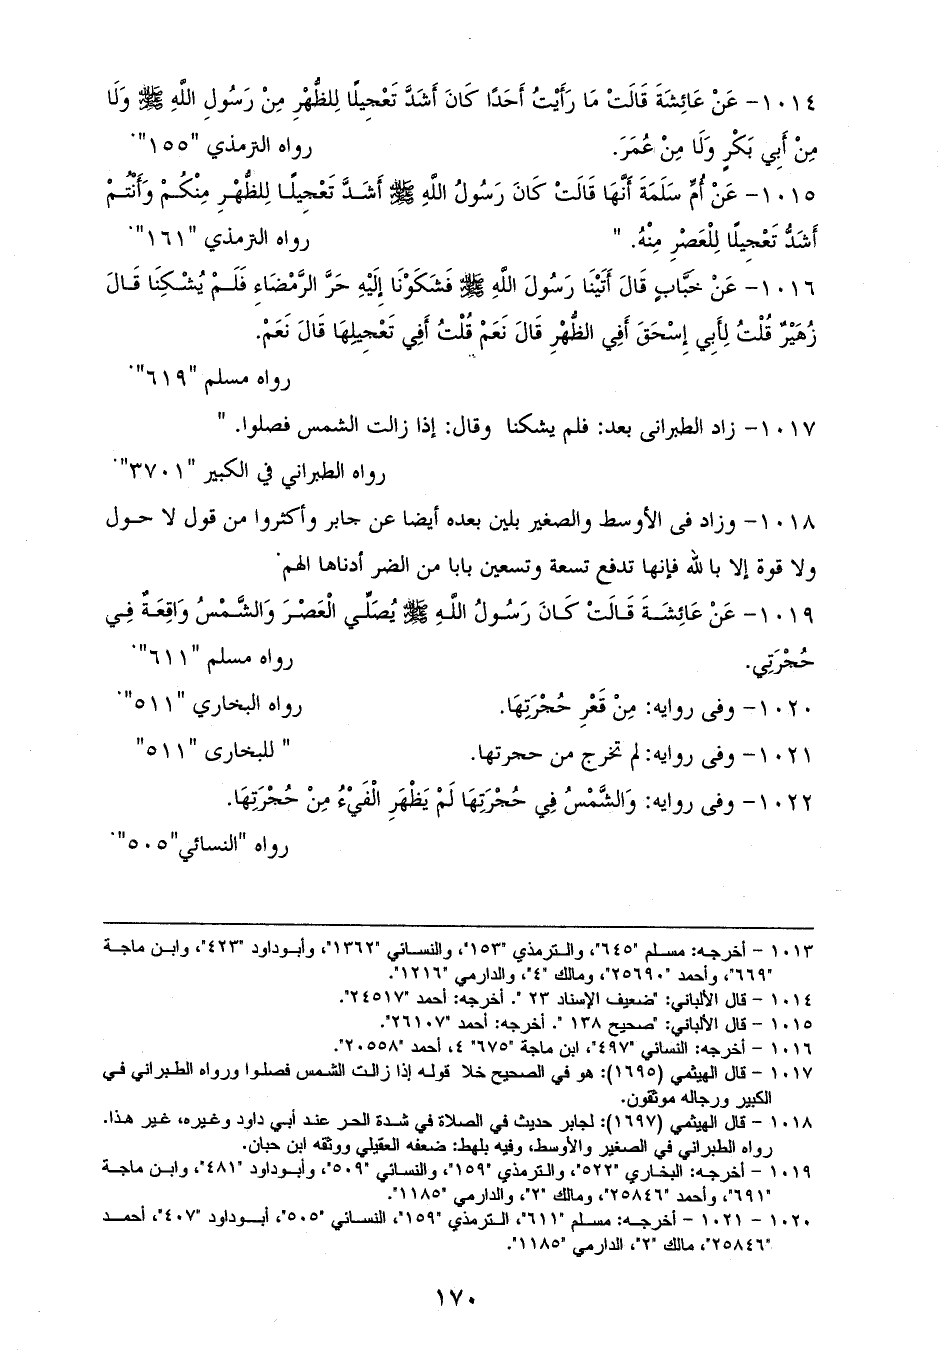 ١٠١٤- عَنْ عَائِشَةَ قَالَتْ مَا رَأَيْتُ أَحَدًا كَانَ أَشَدَّ تَعْجِيلًا لِلظُّهْرِ مِنْ رَسُولِ اللَّهِ ﷺ وَلَا
مِنْ أَبِي بَكْرٍ وَلَا مِنْ عُمَرَ. رواه الترمذي "١٥٥".
١٠١٥- عَنْ أُمِّ سَلَمَةَ أَنَّهَا قَالَتْ كَانَ رَسُولُ اللَّهِ ﷺ أَشَدَّ تَعْجِيلًا لِلظُّهْرِ مِنْكُمْ وَأَنْتُمْ
أَشَدُّ تَعْجِيلًا لِلْعَصْرِ مِنْهُ. " رواه الترمذي "١٦١".
١٠١٦- عَنْ خَبَّابٍ قَالَ أَتَيْنَا رَسُولَ اللَّهِ ﷺ فَشَكَوْنَا إِلَيْهِ حَرَّ الرَّمْضَاءِ فَلَمْ يُشْكِنَا قَالَ
زُهَيْرٌ قُلْتُ لِأَبِي إِسْحَقَ أَفِي الظُّهْرِ قَالَ نَعَمْ قُلْتُ أَفِي تَعْجِيلِهَا قَالَ نَعَمْ.
رواه مسلم "٦١٩".
١٠١٧- زاد الطبرانى بعد: فلم يشكنا وقال: إذا زالت الشمس فصلوا. "
رواه الطبراني في الكبير "٣٧٠١".
١٠١٨- وزاد فى الأوسط والصغير بلين بعده أيضا عن جابر وأكثروا من قول لا حول
ولا قوة إلا بالله فإنها تدفع تسعة وتسعين بابا من الضر أدناها الهم.
١٠١٩- عَنْ عَائِشَةَ قَالَتْ كَانَ رَسُولُ اللَّهِ ﷺ يُصَلِّي الْعَصْرَ وَالشَّمْسُ وَاقِعَةٌ فِي
حُجْرَتِي. رواه مسلم "٦١١".
١٠٢٠- وفى روايه: مِنْ قَعْرِ حُجْرَتِهَا. رواه البخاري "٥١١".
١٠٢١- وفى روايه: لم تخرج من حجرتها. " للبخارى "٥١١"
١٠٢٢- وفى روايه: وَالشَّمْسُ فِي حُجْرَتِهَا لَمْ يَظْهَرِ الْفَيْءُ مِنْ حُجْرَتِهَا.
رواه "النسائي"٥٠٥".
١٠١٣ - أخرجه: مسلم "٦٤٥"، والترمذي "١٥٣"، والنسائي "١٣٦٢"، وأبوداود "٤٢٣"، وابن ماجة
"٦٦٩"، وأحمد "٢٥٦٩٠"، ومالك "٤"، والدارمي "١٢١٦".
١٠١٤ - قال الألباني: "ضعيف الإسناد ٢٣ ". أخرجه: أحمد "٢٤٥١٧".
١٠١٥ - قال الألباني: "صحيح ١٣٨ ". أخرجه: أحمد "٢٦١٠٧".
١٠١٦ - أخرجه: النسائي "٤٩٧"، ابن ماجة "٦٧٥" ٤، أحمد "٢٠٥٥٨".
١٠١٧ - قال الهيثمي (١٦٩٥): هو في الصحيح خلا قوله إذا زالت الشمس فصلوا ورواه الطبراني في
الكبير ورجاله موثقون.
١٠١٨ - قال الهيثمي (١٦٩٧): لجابر حديث في الصلاة في شدة الحر عند أبي داود وغيره، غير هذا.
رواه الطبراني في الصغير والأوسط، وفيه بلهط: ضعفه العقيلي ووثقه ابن حبان.
١٠١٩ - أخرجه: البخاري "٥٢٢"، والترمذي "١٥٩"، والنسائي "٥٠٩"، وأبوداود "٤٨١"، وابن ماجة
"٦٩١"، وأحمد "٢٥٨٤٦"، ومالك "٢"، والدارمي "١١٨٥".
١٠٢٠ - ١٠٢١ - أخرجه: مسلم "٦١١"، الترمذي "١٥٩"، النسائي "٥٠٥"، أبوداود "٤٠٧"، أحمد
"٢٥٨٤٦"، مالك "٢"، الدارمي "١١٨٥".
١٧٠